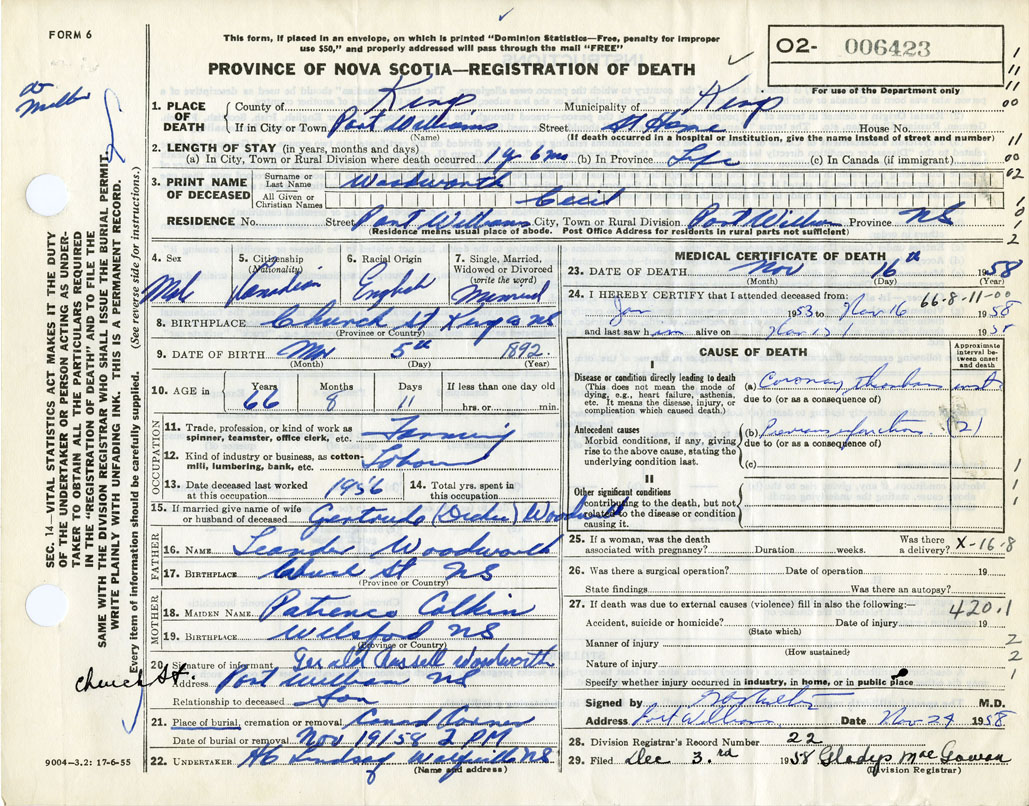 FORM 6
This form, if placed in an envelope, on which is printed "Dominion Statistics—Free, penalty for improper
use $50," and properly addressed will pass through the mail "FREE"
PROVINCE OF NOVA SCOTIA—REGISTRATION OF DEATH
O2- 006423
For use of the Department only
1. PLACE OF DEATH { County of Kings Municipality of Kings
If in City or Town Port Williams Street At Home House No.
(Name) (If death occurred in a hospital or institution, give the name instead of street and number)
2. LENGTH OF STAY (in years, months and days)
(a) In City, Town or Rural Division where death occurred 1 y 6 mo (b) In Province Life (c) In Canada (if immigrant)
3. PRINT NAME OF DECEASED { Surname or Last Name Woodworth
All Given or Christian Names Cecil
RESIDENCE No. Street Port Williams City, Town or Rural Division Port William Province NS
(Residence means usual place of abode. Post Office Address for residents in rural parts not sufficient)
4. Sex 5. Citizenship (Nationality) 6. Racial Origin 7. Single, Married, Widowed or Divorced (write the word)
Male Canadian English Married
8. BIRTHPLACE Church St Kings NS
(Province or Country)
9. DATE OF BIRTH Mar 5th 1892
(Month) (Day) (Year)
10. AGE in { Years Months Days If less than one day old
66 8 11 hrs. or min.
OCCUPATION
11. Trade, profession, or kind of work as spinner, teamster, office clerk, etc. Farming
12. Kind of industry or business, as cotton-mill, lumbering, bank, etc.
13. Date deceased last worked at this occupation 1956 14. Total yrs. spent in this occupation
15. If married give name of wife or husband of deceased Gertrude Woodworth
FATHER
16. NAME Leander Woodworth
17. BIRTHPLACE Church St NS
(Province or Country)
MOTHER
18. MAIDEN NAME Patience Calkin
19. BIRTHPLACE NS
(Province or Country)
20. Signature of informant Gerald Russell Woodworth
Church St.
Address Port William NS
Relationship to deceased Son
21. Place of burial, cremation or removal Canard Corner
Date of burial or removal Nov 19/58 2 PM
22. UNDERTAKER Lindsay NS
(Name and address)
9004—3.2: 17-6-55
SEC. 14—VITAL STATISTICS ACT MAKES IT THE DUTY
OF THE UNDERTAKER OR PERSON ACTING AS UNDER-
TAKER TO OBTAIN ALL THE PARTICULARS REQUIRED
IN THE "REGISTRATION OF DEATH" AND TO FILE THE
SAME WITH THE DIVISION REGISTRAR WHO SHALL ISSUE THE BURIAL PERMIT.
WRITE PLAINLY WITH UNFADING INK. THIS IS A PERMANENT RECORD.
Every item of information should be carefully supplied. (See reverse side for instructions.)
MEDICAL CERTIFICATE OF DEATH
23. DATE OF DEATH Nov 16th 1958
(Month) (Day) (Year)
24. I HEREBY CERTIFY that I attended deceased from: 66-8-11-00
Jan 1953 to Nov 16 1958
and last saw him alive on Nov 19
CAUSE OF DEATH
Approximate interval between onset and death
I
Disease or condition directly leading to death
(This does not mean the mode of dying, e.g., heart failure, asthenia, etc. It means the disease, injury, or complication which caused death.)
(a) Coronary
due to (or as a consequence of)
Antecedent causes
Morbid conditions, if any, giving rise to the above cause, stating the underlying condition last.
(b) Previous infarctions (2)
due to (or as a consequence of)
(c)
II
Other significant conditions
contributing to the death, but not related to the disease or condition causing it.
25. If a woman, was the death associated with pregnancy? Duration weeks. Was there a delivery? X-16-8
26. Was there a surgical operation? Date of operation 19
State findings Was there an autopsy?
27. If death was due to external causes (violence) fill in also the following:— 420.1
Accident, suicide or homicide? Date of injury 19
(State which)
Manner of injury
(How sustained)
Nature of injury
Specify whether injury occurred in industry, in home, or in public place
Signed by M.D.
Address Port Williams Date Nov 24 1958
28. Division Registrar's Record Number 22
29. Filed Dec 3rd 1958 Gladys MacGowan
(Division Registrar)